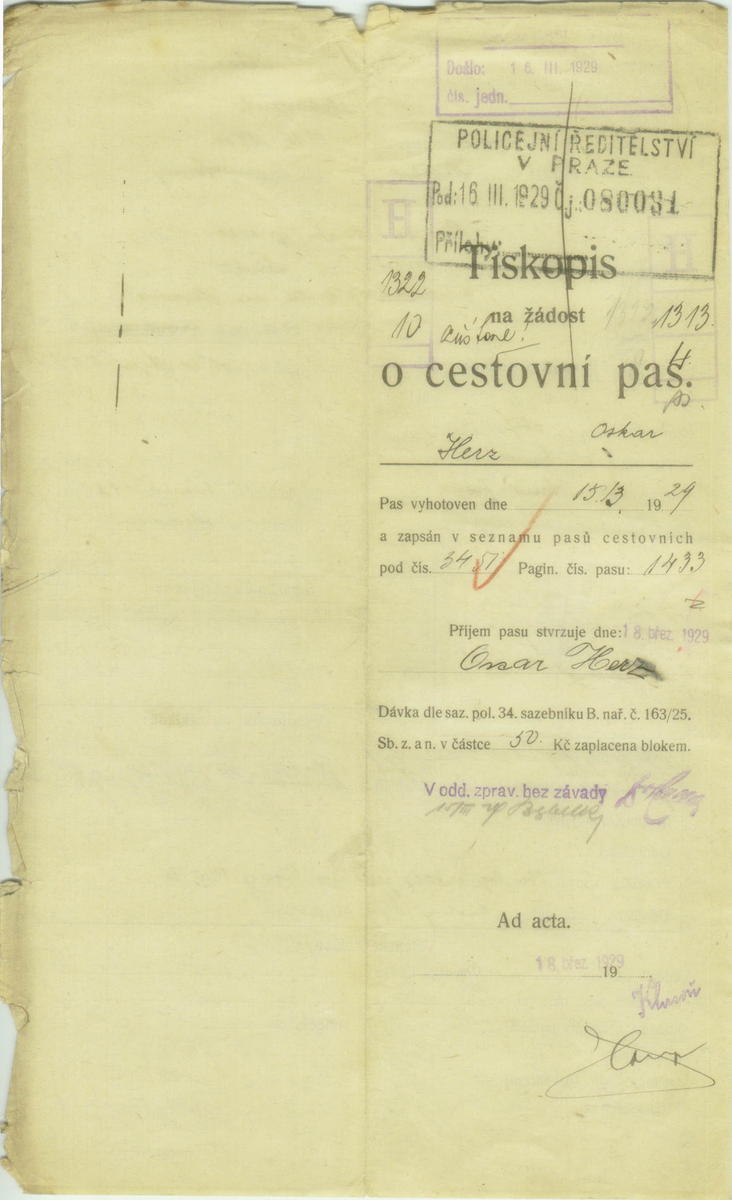 Došlo: 16. III. 1929
čís. jedn.
POLICEJNÍ ŘEDITELSTVÍ
V PRAZE
Pod: 16 III. 1929 Čj. 080031
Přílohy:
H
Tiskopis
1322
na žádost 1313
10
o cestovní pas.
Herz Oskar
Pas vyhotoven dne 15/3. 1929
a zapsán v seznamu pasů cestovních
pod čís. 3451 Pagin. čís. pasu: 1433
Příjem pasu stvrzuje dne: 18. břez. 1929
Oscar Herz
Dávka dle saz. pol. 34. sazebníku B. nař. č. 163/25.
Sb. z. a n. v částce 50. Kč zaplacena blokem.
V odd. zprav. bez závady
15/III
Ad acta.
18. břez. 1929 19